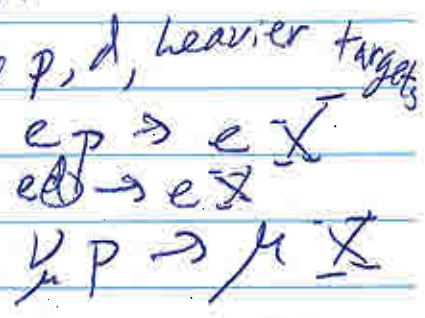 p, d, heavier targets
e p → e X
e d → e X
ν_μ p → μ X